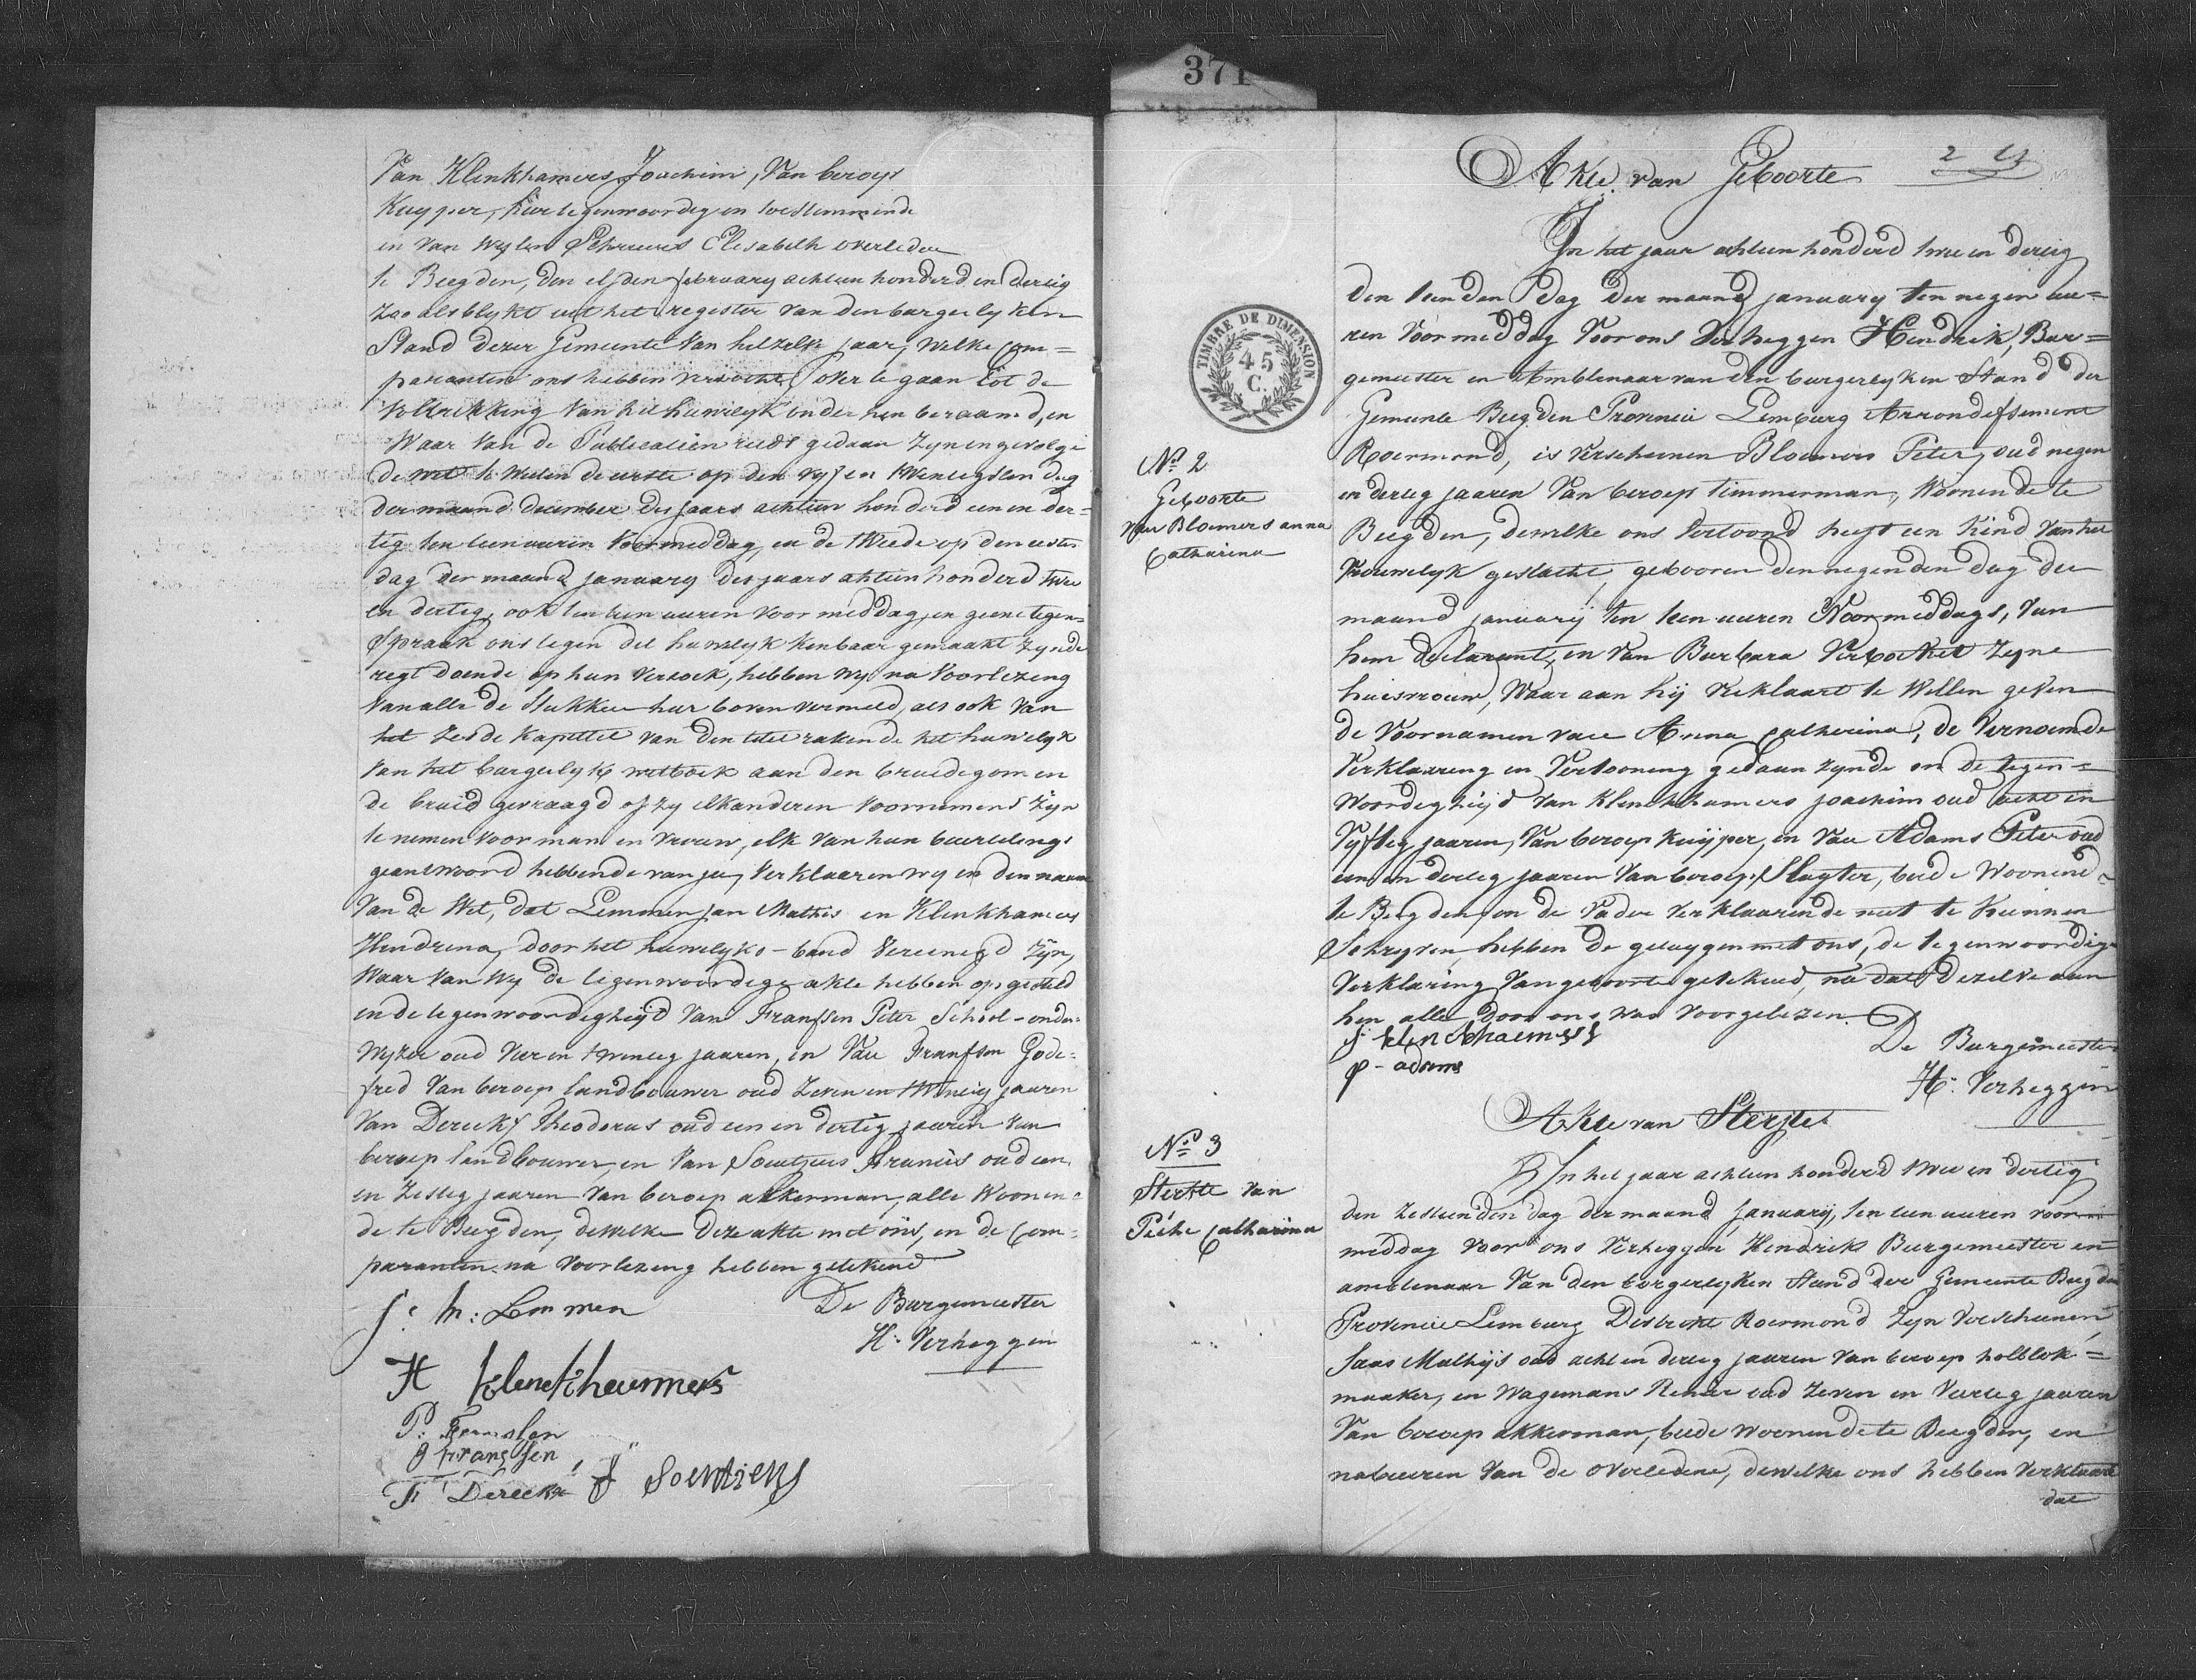 Van Klenkhamers Joachim, Van beroep
Kuyper, hier tegenwoordig en toestemmende
en van wylen Schreurs Elisabeth overleden
te Beegden, den elfden february achtien honderd en dertig
zoo als blykt uit het register van den burgerlyken
Stand dezer Gemeente van hetzelve jaar, welke Com=
paranten ons hebben versocht over te gaan tot de
Voltrekking Van het huwelyk onder hen beraamd, en
Waar Van de Publicatien reeds gedaan zyn ingevolge
de wet te weten de eerste op den vyf en twentigsten dag
der maand december des jaars achtien honderd een en der=
tig ten tien uuren voormeddag, en de tweede op den eersten
dag der maand january des jaars achtien honderd twee
en dertig, ook ten tien uuren voor middag, en geene tegen=
spraak ons tegen dit huwelyk kenbaar gemaakt zynde
regt doende op hun Versoek, hebben wy na Voorlezing
Van alle de Stukken hier boven vermeld, als ook Van
het zesde kapittel van den titel rakende het huwelyk
Van het burgerlyk wetboek aan den bruidegom en
de bruid gevraagd of zy elkanderen voornemens zyn
te nemen voor man en vrouw, elk Van hun beurtelings
geantwoord hebbende van ja, Verklaaren wy in den naam
Van de Wet, dat Lemmen jan Mathis en Klenkhamers
Hendrina, door het huwelyks-band Vereenigd zyn,
Waar Van Wy de tegenwoordige akte hebben opgesteld
in de tegenwoordigheyd Van Franssen Peter School-onder=
wyzer oud vier en twentig jaaren, en Van Franssen Gode=
fred Van beroep landbouwer oud zeven en twentig jaaren
Van Derickx Theodorus oud een en dertig jaaren Van
beroep landbouwer, en Van Soentjens Francis oud een
en zestig jaaren Van beroep akkerman, alle Woonen=
de te Beegden, dewelke deze akte met ons, en de Com=
paranten na Voorlezing hebben getekend
J: M: Lemmen
De Burgemeester
H: Verheggen
H Klenckhammers
P: Franssen
G franssen
T Derickx
f Soentiens
371
2
Akte van Geboorte
In het jaar achtien honderd twee en dertig
den tienden dag der maand january ten negen uu=
ren Voormeddag Voor ons Verheggen Hendrik, Bur=
gemeester en Ambtenaar van den burgerlyken Stand der
Gemeente Beegden Provincie Limburg Arrondissement
Roermond, is verscheenen Bloemers Peter, oud negen
en dertig jaaren Van beroep timmerman, Woonende te
Beegden, dewelke ons Vertoond heeft een Kind Van het
Vrouwelyk geslacht, gebooren den negenden dag der
maand january ten tien uuren Voormeddags, Van
hem declarant, en Van Barbara Verboeket zyne
huisvrouw, Waar aan hy verklaart te Willen geven
de Voornamen van Anna Catharina, de Vernoemde
Verklaaring en Vertooning gedaan zynde in de tegen=
woordigheyd van Klenckhamers joachim oud acht en
Vyftig jaaren, Van beroep kuyper, en Van Adams Peter oud
een en dertig jaaren Van beroep Sluyter, beide Woonend
te Beegden, en de Vader Verklaarende niet te kunnen
Schryven, hebben de getuygen met ons, de tegenwoordige
Verklaring Van geboorte getekend, na dat dezelve aan
hen alle door ons was Voorgelezen.
De Burgemeester
P - adams
H: Verheggen
TIMBRE DE DIMENSION
45
C.
No 2
Geboorte
van Bloemers anna
Catharina
Akte van Sterfte
In het jaar achtien honderd twee en dertig
den zestienden dag der maand january, ten tien uuren voor=
meddag Voor ons Verheggen Hendrik Burgemeester en
amtenaar Van den burgerlyken Stand der Gemeente Beegden
Provincie Limburg District Roermond zyn Verscheenen
Saas Mathys oud acht en dertig jaaren Van beroep holblok=
maaker, en Wagemans Renier oud zeven en Veertig jaaren
Van beroep akkerman, beide woonende te Beegden, en
nabueren Van de overledene, dewelke ons hebben Verklaart
dat
No 3
Sterfte van
Catharina